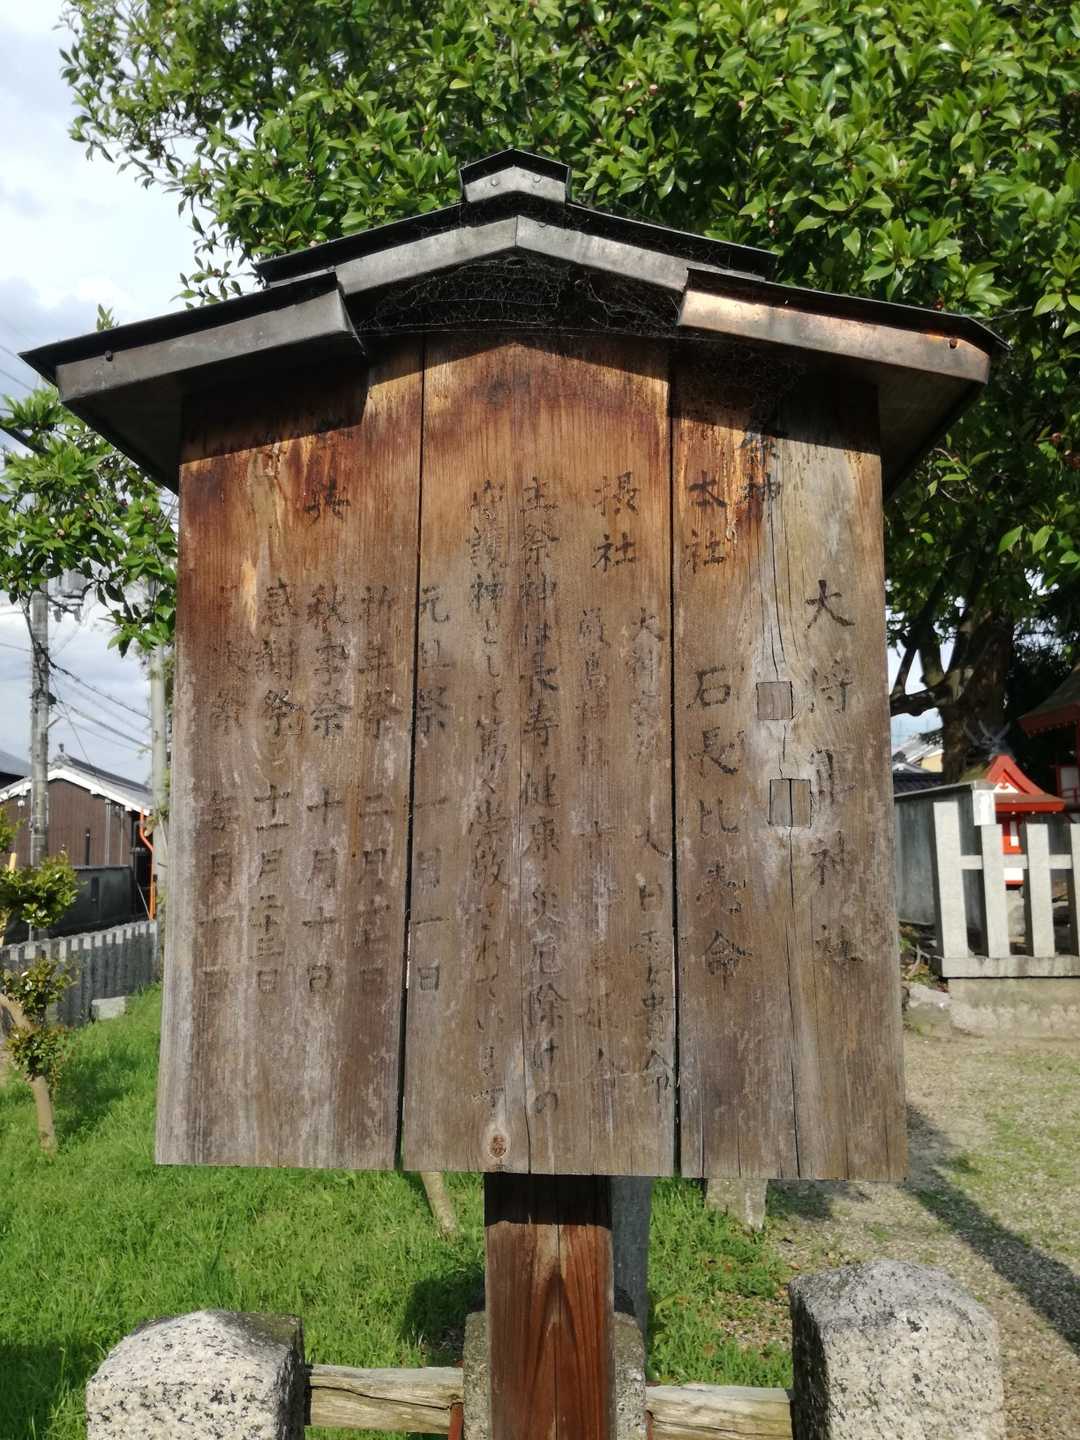 大将軍神社
祭神
本社 石長比売命
摂社 大神宮 大日孁貴命
厳島神社
主祭神は長寿健康災厄除けの
守護神として篤く崇敬されています
元旦祭 一月一日
祈年祭 二月十七日
秋季祭 十月十日
感謝祭 十一月二十三日
月次祭 毎月一日